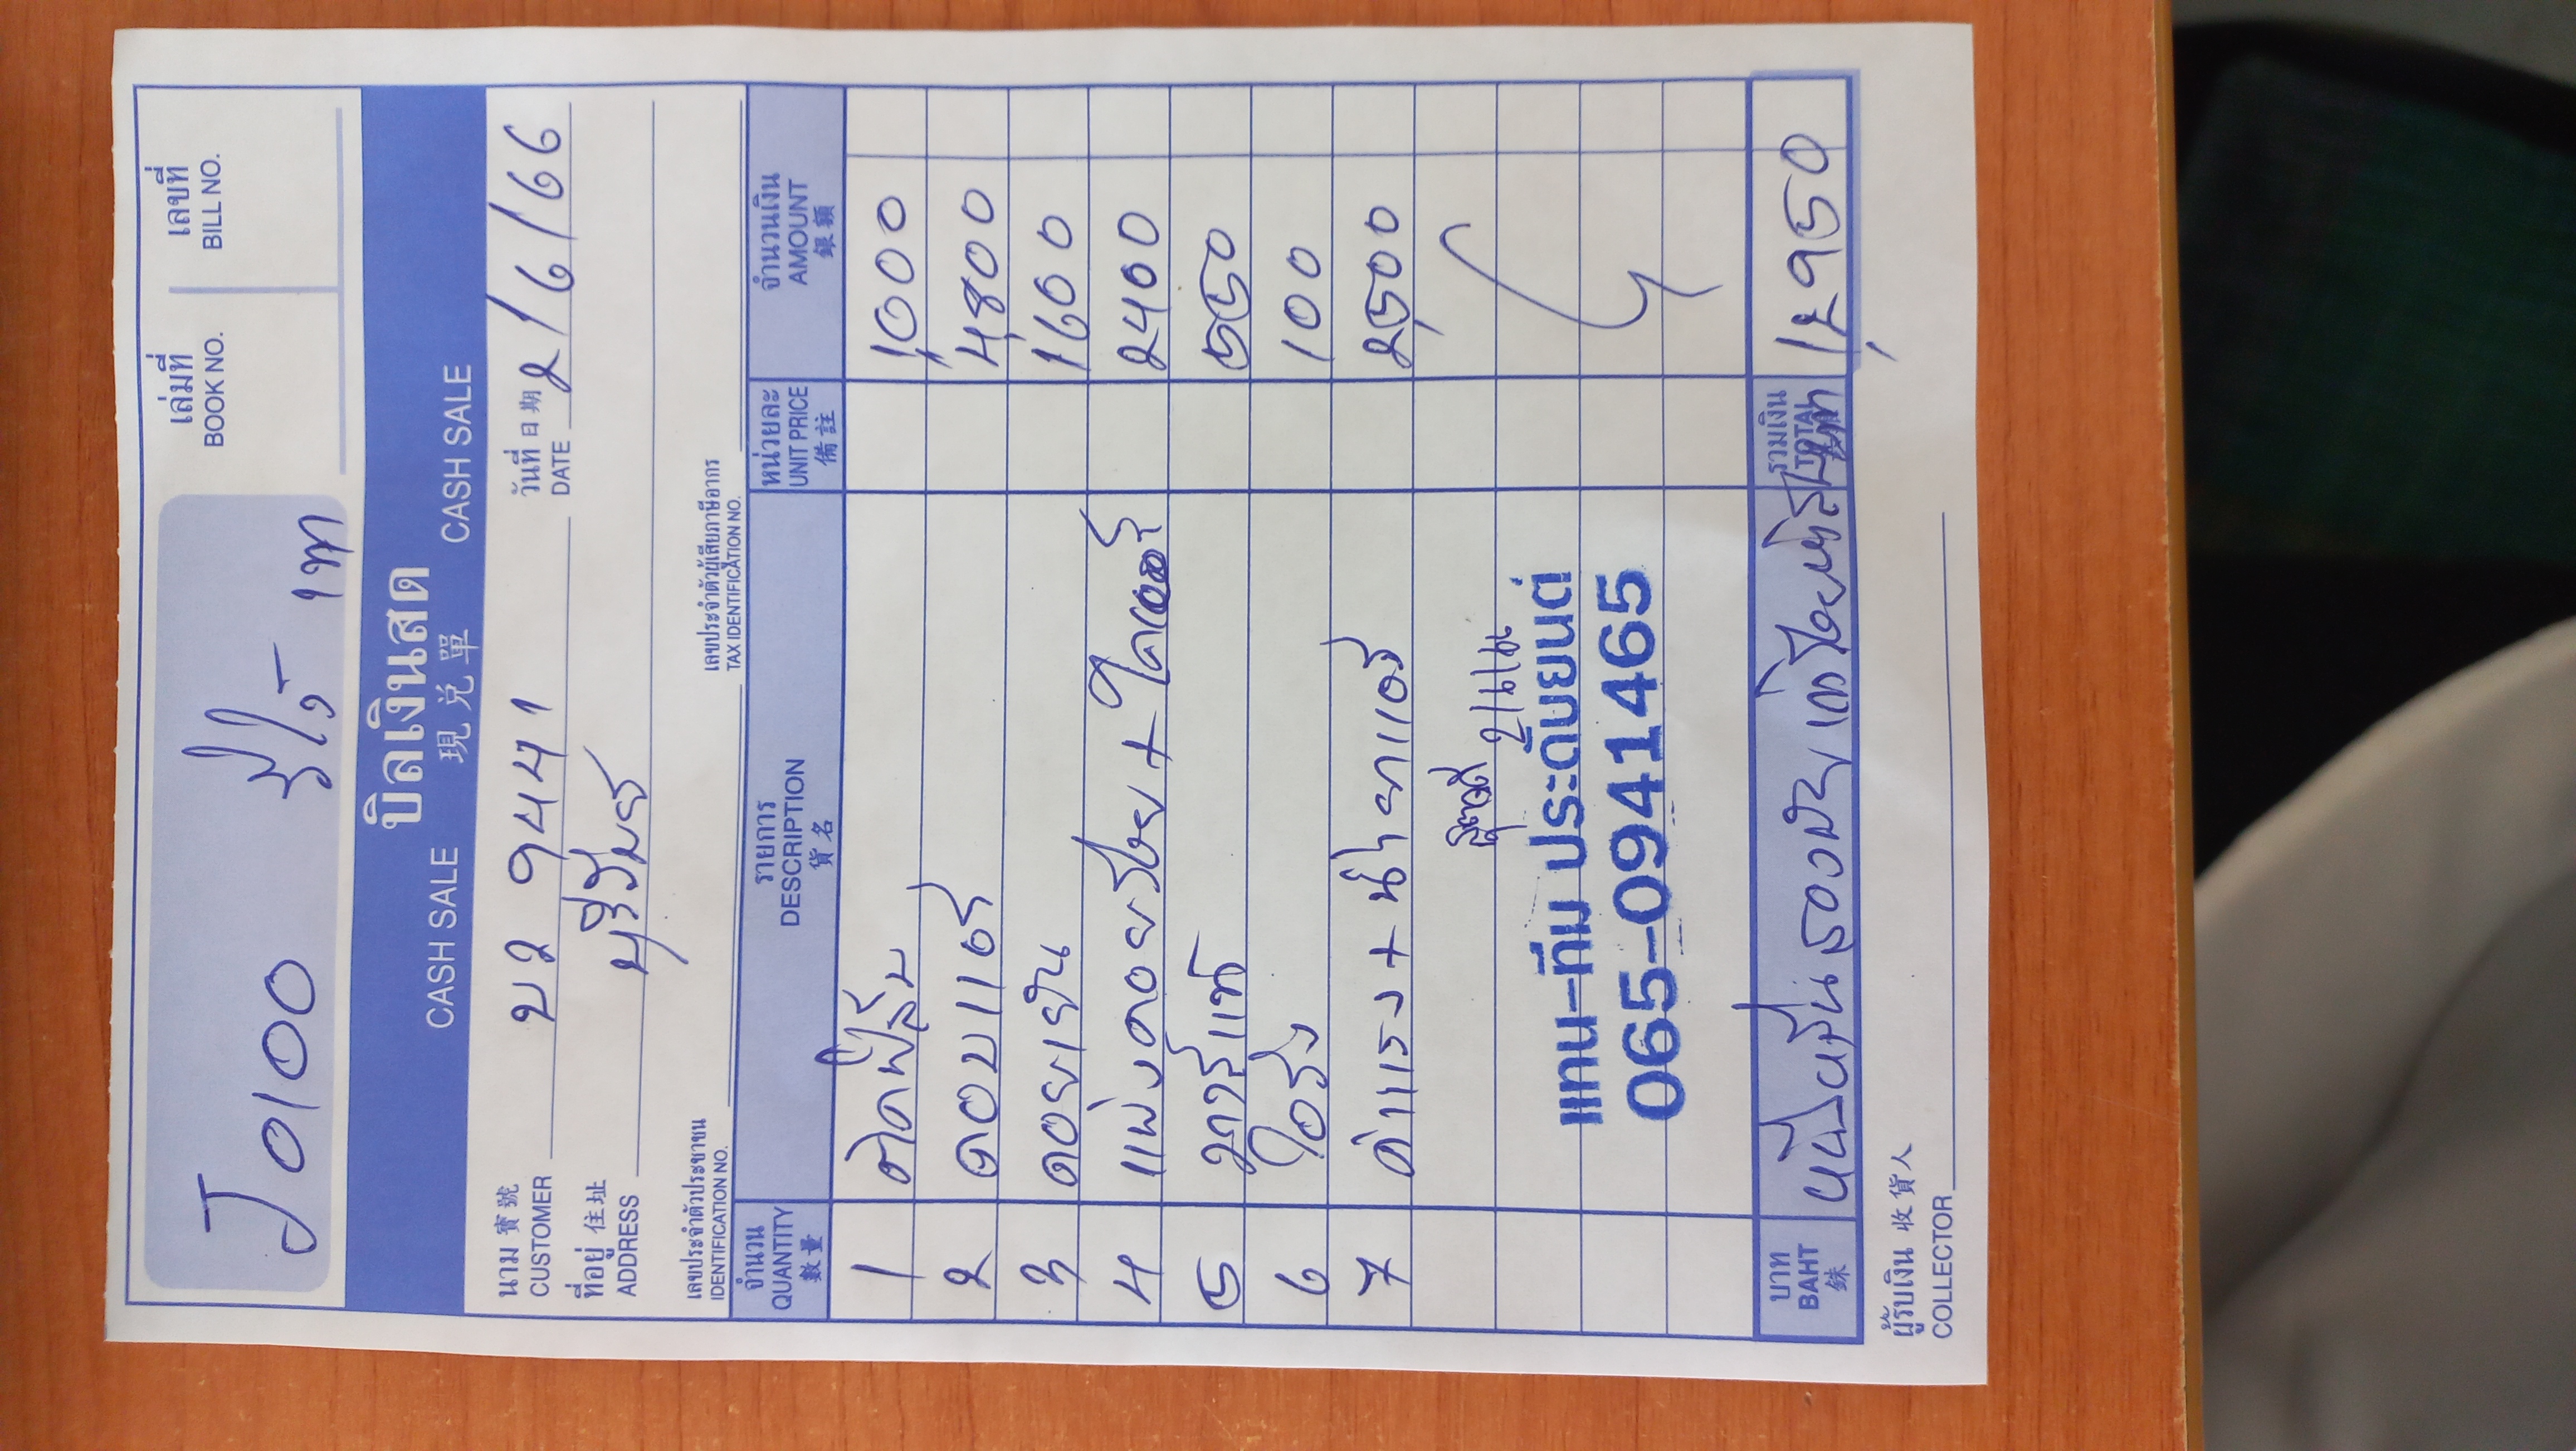 เล่มที่
BOOK NO.
เลขที่
BILL NO.
J0100
บิลเงินสด
CASH SALE 現兑單 CASH SALE
นาม 寶號
CUSTOMER
บว 9441
วันที่ 日期
DATE
2/6/66
ที่อยู่ 住址
ADDRESS
บุรีรัมย์
เลขประจำตัวประชาชน
IDENTIFICATION NO.
เลขประจำตัวผู้เสียภาษีอากร
TAX IDENTIFICATION NO.
จำนวน
QUANTITY
數量
รายการ
DESCRIPTION
貨名
หน่วยละ
UNIT PRICE
備註
จำนวนเงิน
AMOUNT
銀額
1 ติดฟิล์ม 1,000
2 คอบแอร์ 4,800
3 คอยเย็น 1,600
4 แผงคอยร้อย + ไดเออร์ 2400
5 วาล์วแท้ 550
6 โอริง 100
7 ค่าแรง + น้ำยาแอร์ 2,500
แทน-ทีม ประดับยนต์
065-0941465
บาท
BAHT
銖
หนึ่งหมื่นสองพันเก้าร้อยห้าสิบบาท
รวมเงิน
TOTAL
12,950
ผู้รับเงิน 收貨人
COLLECTOR